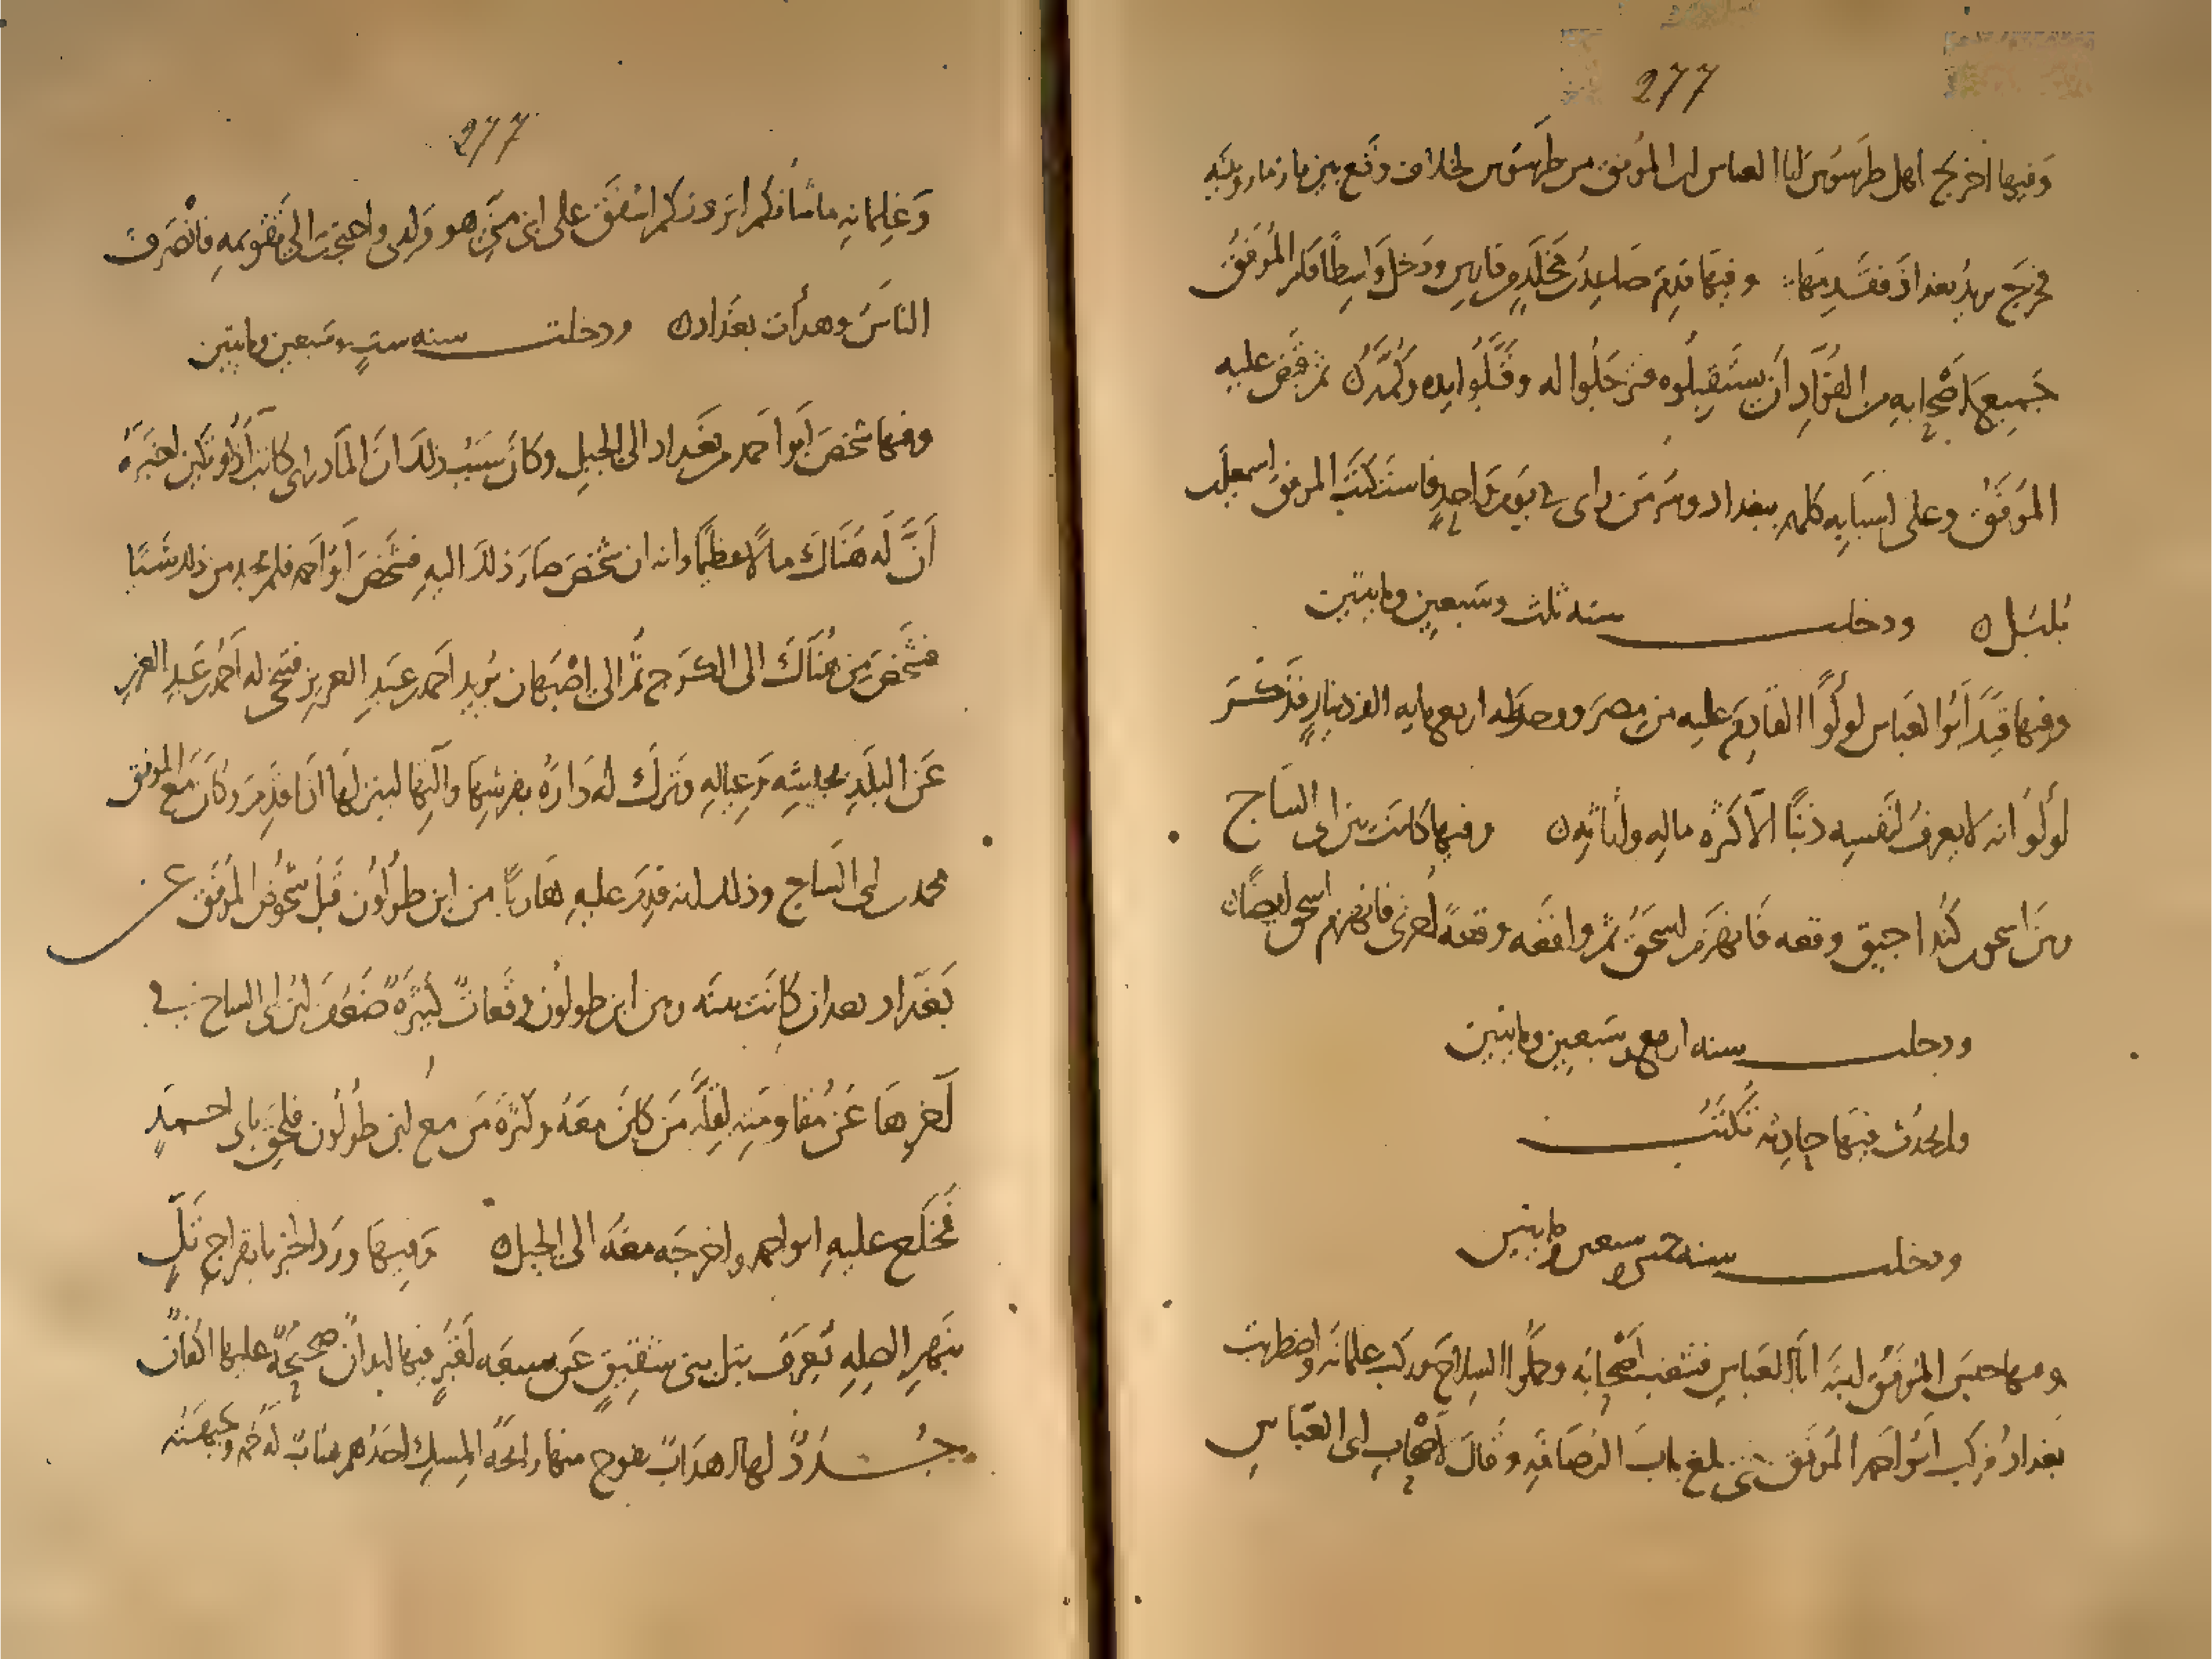 277
وَفيها اخرج اهل طَرَسُوسَ ابا العباس ابن المُوفق من طَرَسُوس لخلاف وقَع بين يازمار وبَينَه
فخرجَ يريد بغداذ فقَدِمَها وفيها قدِمَ صَاعِدُ بن مَخْلَدٍ من فارس ودَخل وَاسِطًا فامَر المُوَفقُ
جَمِيعَ اَصْحابِهِ من القُوَّادِ أن يستَقبِلُوه فترَجَّلُوا له وقَبَّلُوا يده وكمه ثم قبض عليه
المُوَفَقُ وعلى اسبابِه كلهم ببغداد وسُرَّ مَن راى في يَومٍ وَاحِدٍ فاستَكتَبَ الموفق اسمعيل بن
بُلبُل ودخلت سنه ثلث وسَبعِين ومايتين
وفيها قَيَّدَ ابو العَباس لولُوًا القادِمَ عليه من مِصرَ ووجد له اربع مايه الف دينارٍ فذَكَرَ
لُولُو انه لا يعرفُ لنَفسِه ذنبًا الّا كثره مالِه واثاثِه وفيها كانت بين ابن ابى السَّاج
وبين اسحق بن كُنداجيق وقعه فانهَزَم اسحَقُ ثم واقَعَه وقعةً اُخرى فانهزم اسحق ايضًا
ودخلت سنه اربع وسَبعِين ومايتين
ولم يحدُث فيها حادِثه تُكتَبُ
ودخلت سنه خمس وسبعين ومايتين
وفيها حبَسَ المُوَفَّقُ ابنَه ابا العَباسِ فشغب اَصْحَابُه وحملُوا السِلاحَ وركب غلمانُه واضطربت
بغدادُ فركب ابُو احمد المُوَفَق حتى بلغ بابَ الرُصَافَه وقالَ لاَصْحابِ ابى العَبّاسِ
277
وَغِلمانِه ما شانكم اترونكم اشفَقَ على ابنى منّى هو وَلدى واحتجتُ الى تَقويمِه فانْصَرفَ
الناسُ وهدأت بغداد ودخلت سنه ستٍ وسَبعين ومايتين
وفيها شخصَ ابو احمد من بَغداد الى الجبل وكان سَبَبُ ذلك انَّ المادراى كاتب اَذكُوتكين اخبَرَهُ
اَنَّ لَه هُنَاكَ مالًا عظيمًا وانه ان شخصَ صَارَ ذلك اليهِ فشَخَصَ ابو احمد فلم يجد من ذلك شَيًا
فشَخَصَ مِن هُنَاكَ الى الكَرَج ثُمّ الى اِصْبَهان يُريد احمد بن عَبدِ العزيز فتنحى له اَحمد بن عَبدِ العزيز
عَن البلَدِ بجيشِه وَعِيالِهِ وتَركَ لهُ دَارَهُ بفرشِها وآلتِها لينزلَها اذا قَدِمَ وكانَ مَع الموفق
محمد بن ابى السَّاج وذلك انه قدِمَ عليهِ هَارِبًا من ابن طُولُون قَبلَ شُخُوصِ المُوَفَقِ عن
بَغدَاد بعد ان كانت بينه وبين ابن طولُون وقَعاتٌ كَثِيرَةٌ ضَعُفَ ابن ابى الساج في
آخِرِهَا عَن مُقَاومَتِه لقِلَّه مَن كانَ معَهُ وكثرَةِ مَن مع ابن طُولُون فلحِقَ بابى احمد
فَخَلَع عليهِ ابو احمد واخرجَه معَهُ الى الجبل وَفِيها ورَدَ الخبر بانفِراجِ تَلٍّ
بنَهرِ الصِلِهِ يُعرَفُ بتل بنى شقِيقٍ عن سبعَه اَقبُرٍ فيها ابدانٌ صَحِيحَةٌ عليها اكفانٌ
جُدُدٌ لها اهدَابٌ يفوح منها رائحَةُ المِسكِ احَدُهم شابٌ لَهُ جُمه وجَبهَتُه